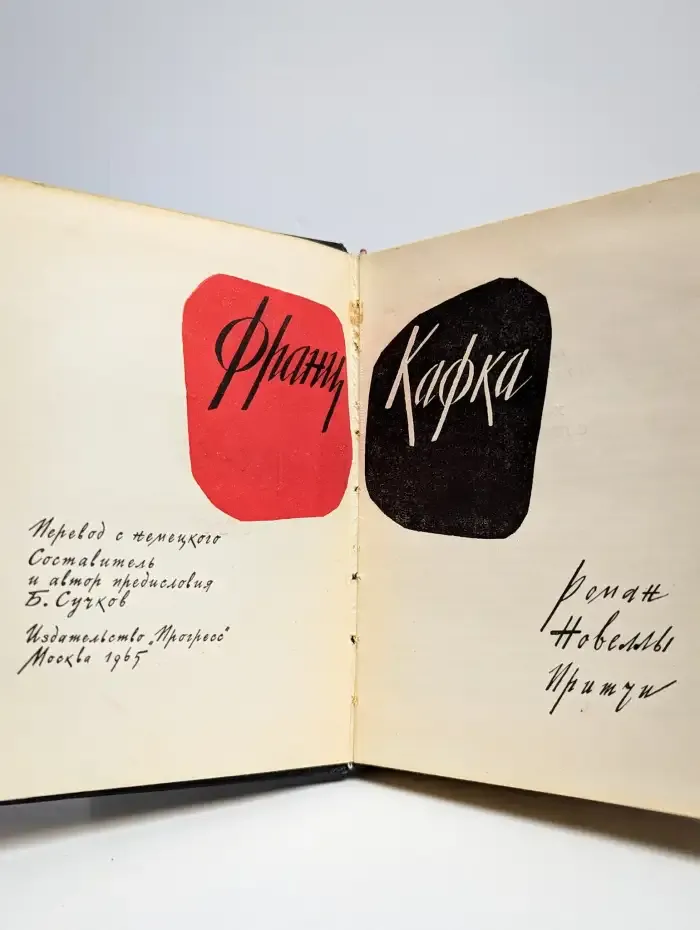 Франц
Кафка
Перевод с немецкого
Составитель
и автор предисловия
Б. Сучков
Издательство „Прогресс"
Москва 1965
Роман
Новеллы
Притчи